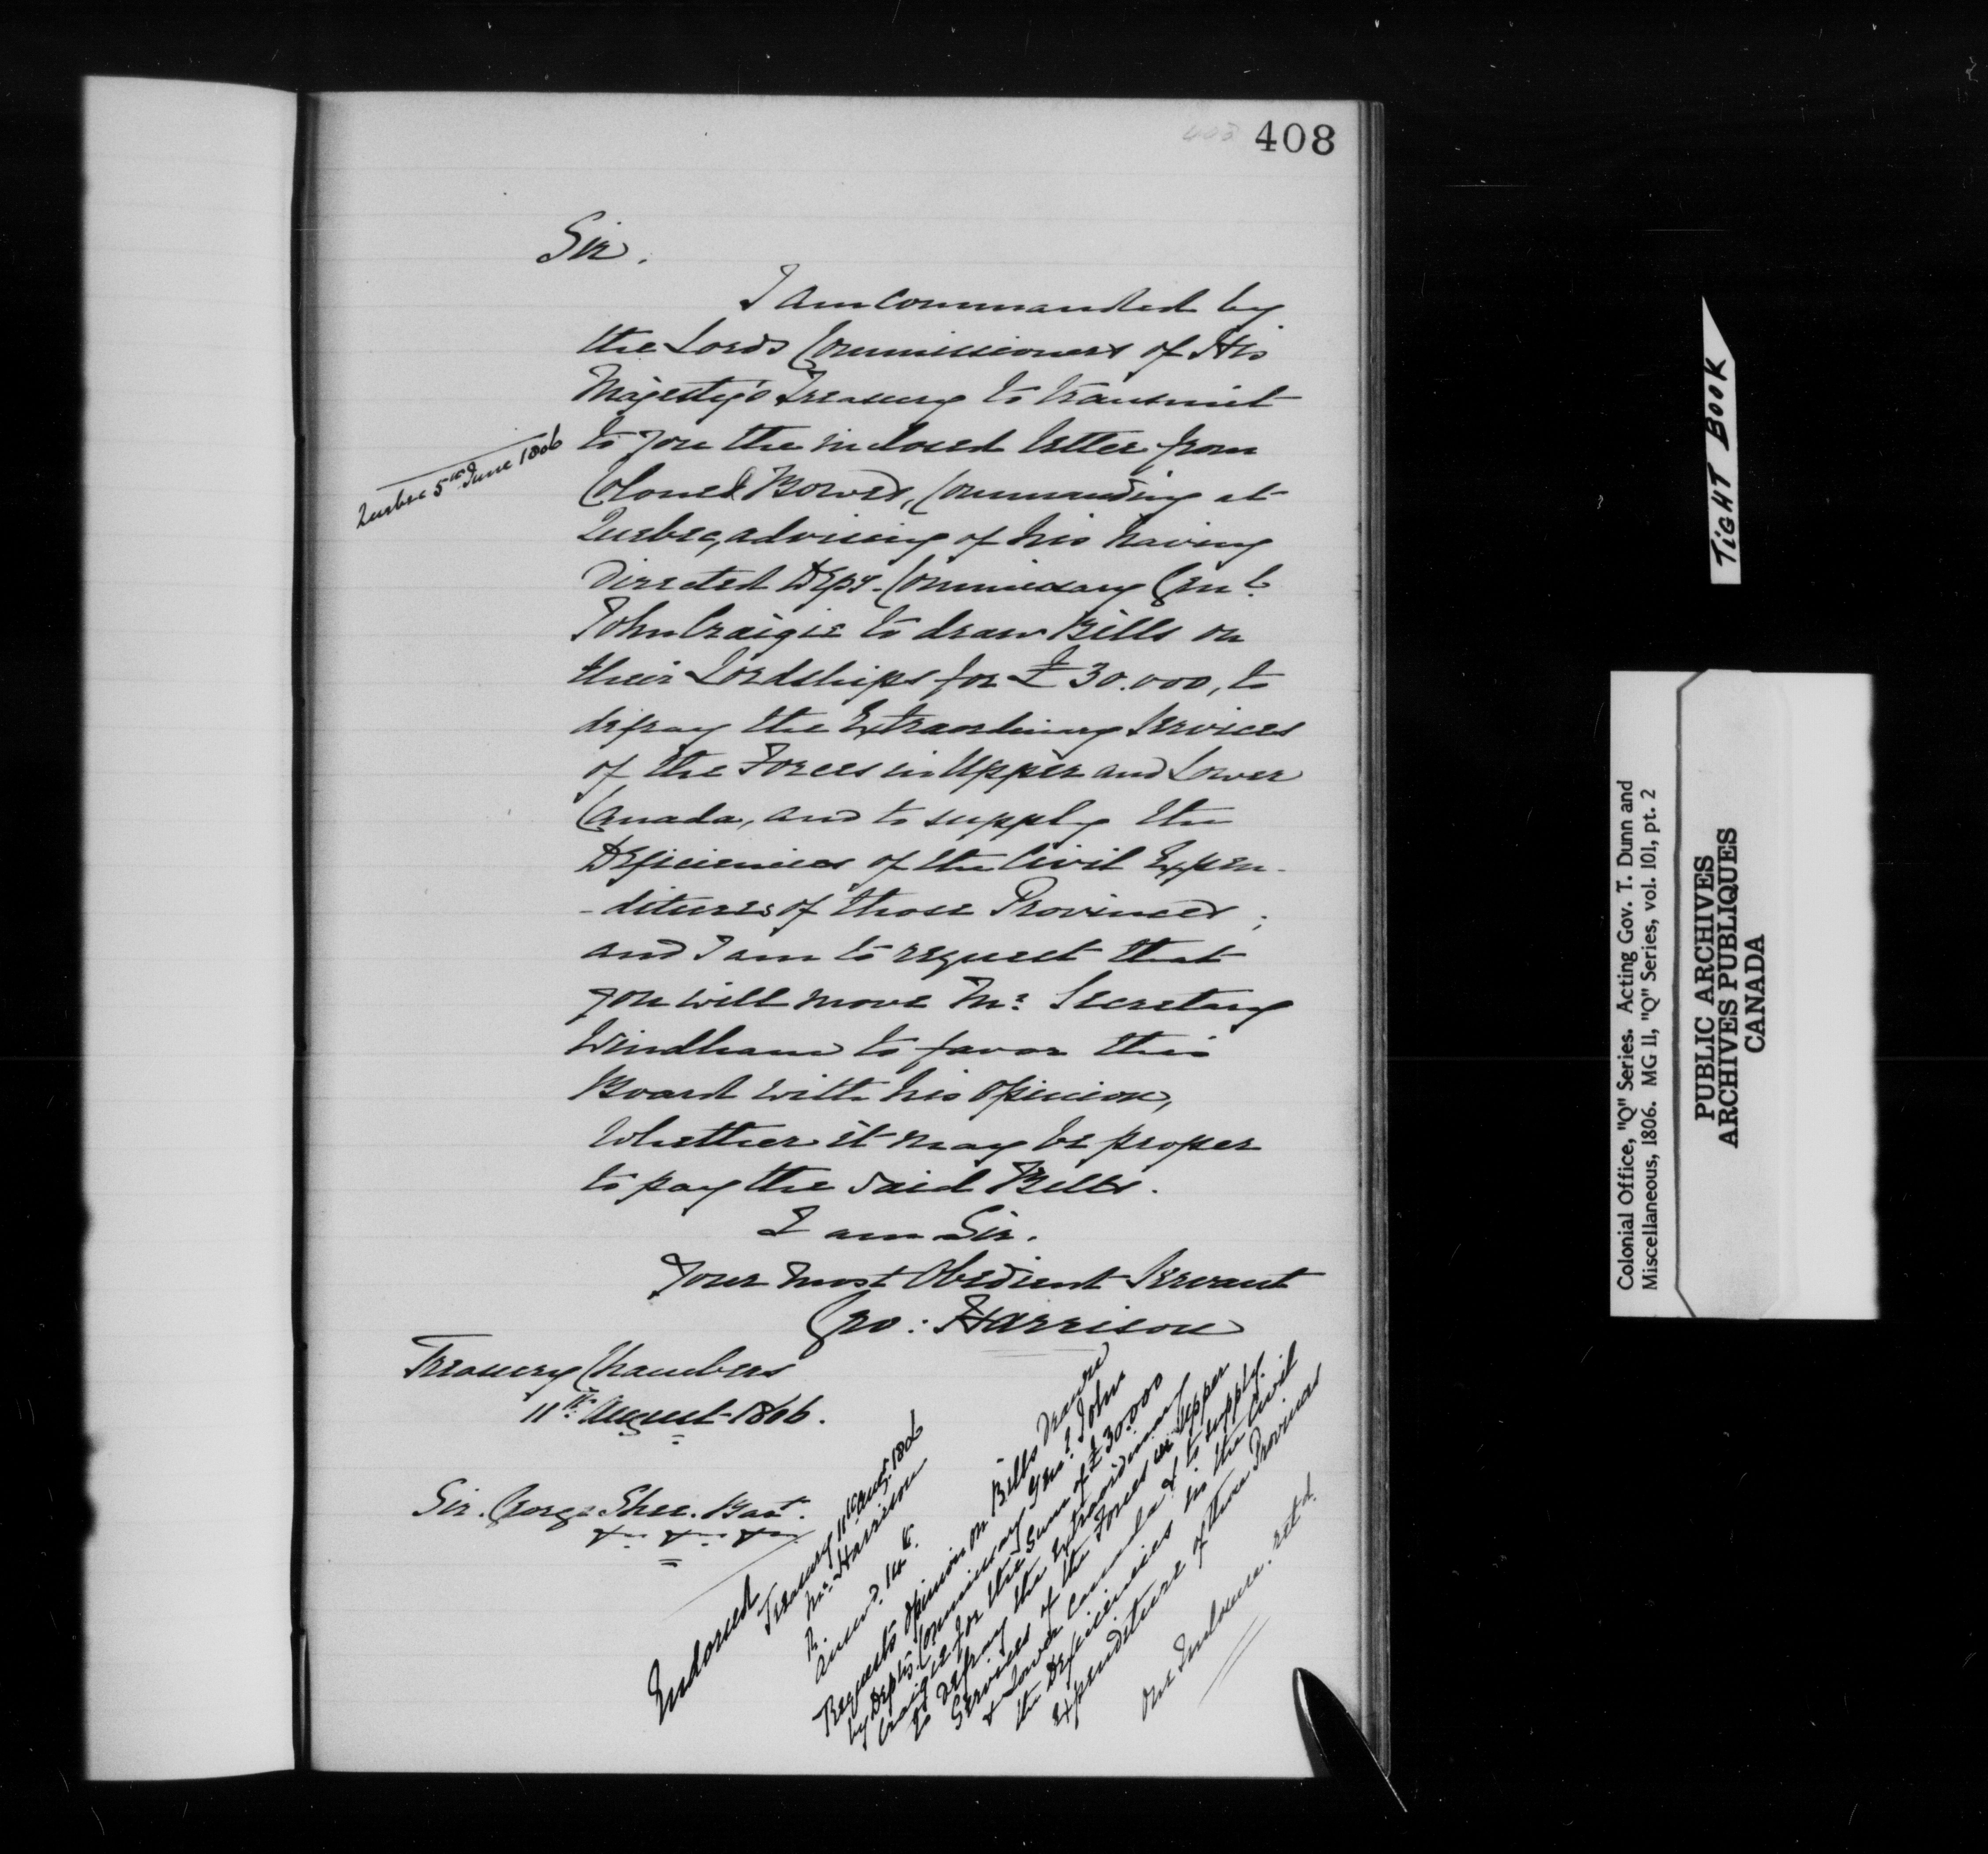 408
Sir.
I am commanded by
the Lords Commissioners of His
Majesty's Treasury to transmit
Quebec 5th June 1806
to you the inclosed letter from
Colonel Bowes, Commanding at
Quebec, advising of his having
directed Depy. Commissary Genl.
John Craigie to draw Bills on
their Lordships for £30.000, to
defray the Extraordinary Services
of the Forces in Upper and Lower
Canada, and to supply the
Deficiencies of the Civil Expen-
-ditures of those Provinces;
and I am to request that
you will move Mr. Secretary
Windham to favor this
Board with his opinion,
whether it may be proper
to pay the said Bills.
I am Sir.
Your most Obedient Servant
Geo: Harrison
Treasury Chambers
11th August 1806.
Sir. George Shee. Bart.
&c &c &c
Endorsed
Treasury 11th Augt. 1806
Mr. Harrison
R.
Answd. 14th.
Requests opinion on Bills drawn
by Depty. Commissary Genl. John
Craigie for the Sum of £30.000
to defray the Extraordinary
Services of the Forces in Upper
& Lower Canada & to supply
the Deficiencies in the Civil
Expenditure of those Provinces
One Inclosure. retd.
TIGHT BOOK
Colonial Office, "Q" Series. Acting Gov. T. Dunn and
Miscellaneous, 1806. MG 11, "Q" Series, vol. 101, pt. 2
PUBLIC ARCHIVES
ARCHIVES PUBLIQUES
CANADA